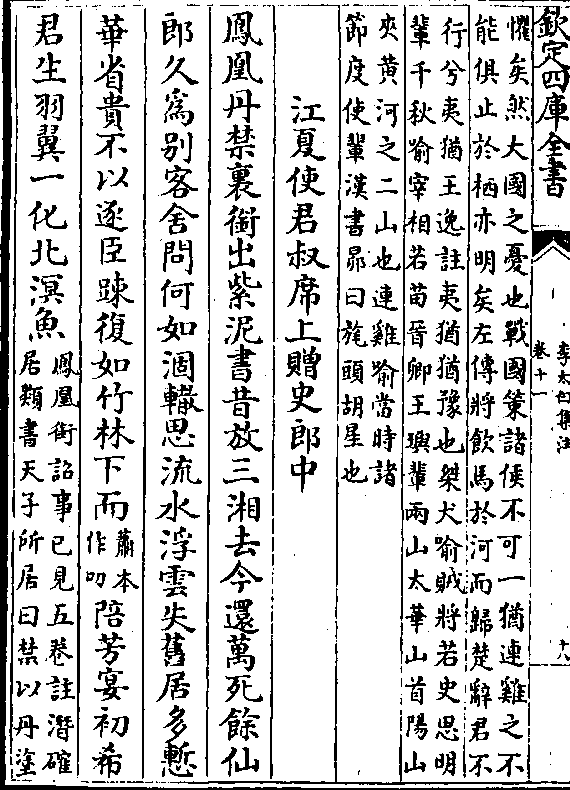 欽定四庫全書
李太白集注
卷十一
十八
懼矣然大國之憂也戰國策諸侯不可一猶連雞之不
能俱止於栖亦明矣左傳將飲馬於河而歸楚辭君不
行兮夷猶王逸註夷猶猶豫也桀犬喻賊將若史思明
輩千秋喻宰相若苗晉卿王璵輩兩山太華山首陽山
夾黄河之二山也連雞喻當時諸
節度使輩漢書昴曰旄頭胡星也
江夏使君叔席上贈史郎中
鳳凰丹禁裏銜出紫泥書昔放三湘去今還萬死餘仙
郎久為别客舍問何如涸轍思流水浮雲失舊居多慙
華省貴不以逐臣踈復如竹林下而
蕭本
作叨
陪芳宴初希
君生羽翼一化北溟魚
鳳凰銜詔事已見五卷註潛確
居類書天子所居曰禁以丹塗